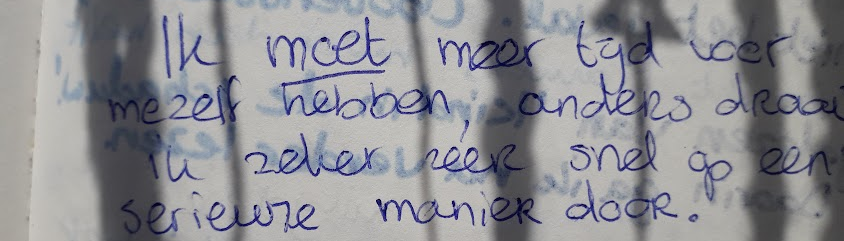 Ik moet meer tijd voor
mezelf hebben, anders draai
ik zeker zeer snel op een
serieuze manier door.